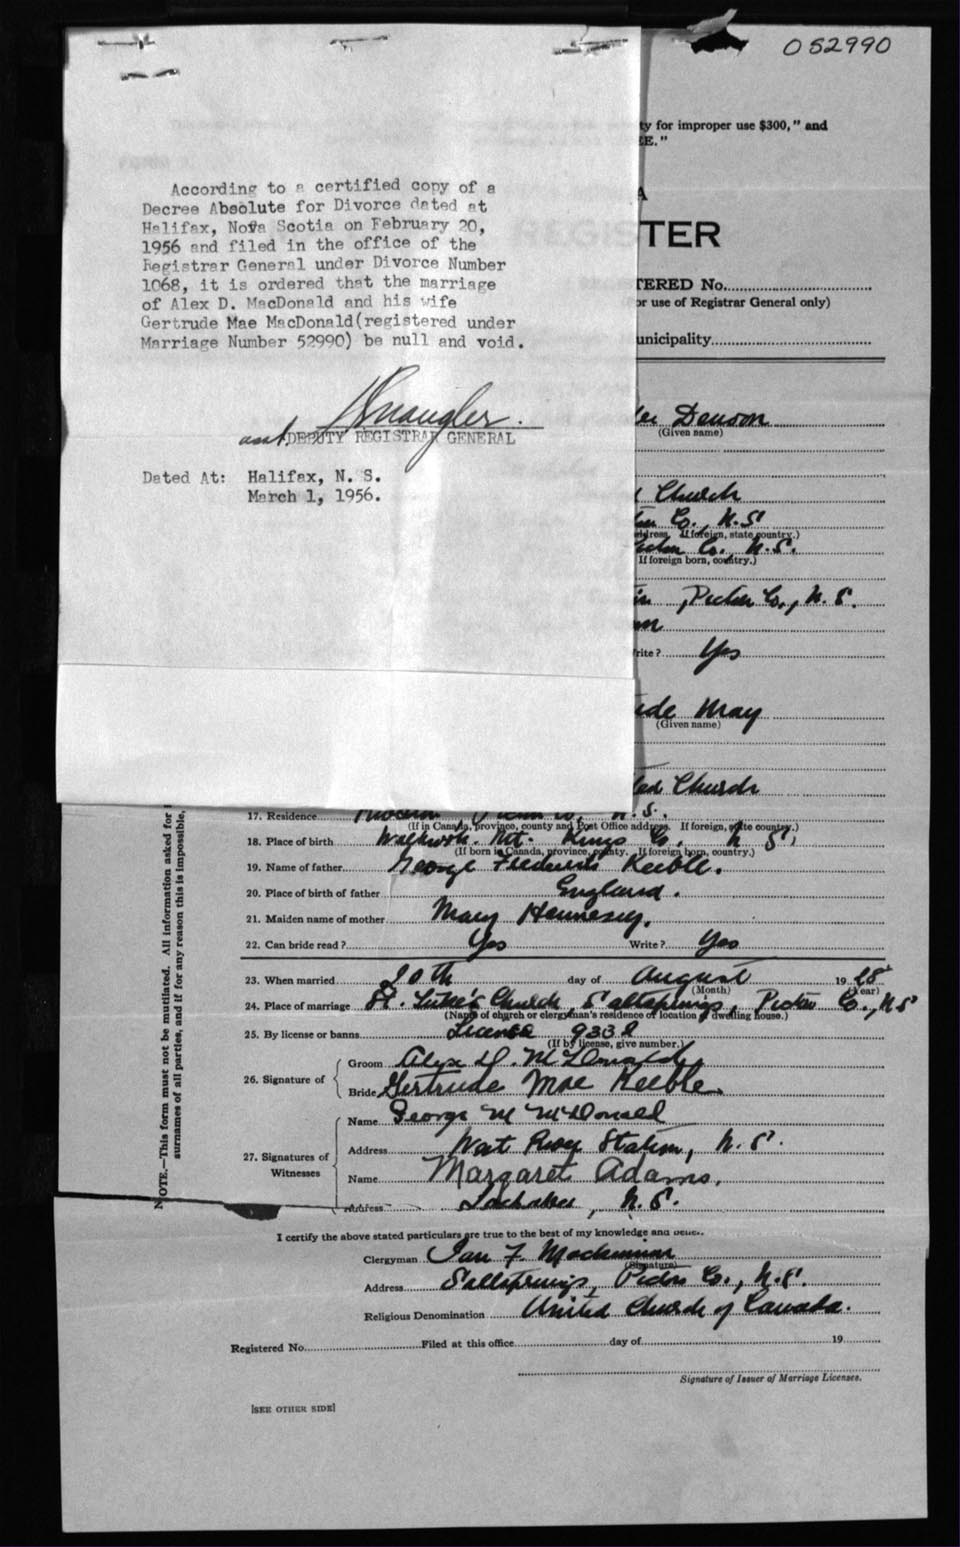 052990
ty for improper use $300," and
EE."
A
REGISTER
TERED No.
(For use of Registrar General only)
unicipality
According to a certified copy of a
Decree Absolute for Divorce dated at
Halifax, Nova Scotia on February 20,
1956 and filed in the office of the
Registrar General under Divorce Number
1068, it is ordered that the marriage
of Alex D. MacDonald and his wife
Gertrude Mae MacDonald(registered under
Marriage Number 52990) be null and void.
DEPUTY REGISTRAR GENERAL
Dated At: Halifax, N. S.
March 1, 1956.
der Denoon
(Given name)
Church
Co., N.S.
ddress. If foreign, state country.)
Co. N.S.
If foreign born, country.)
, Pictou Co., N.S.
rite? Yes
ude May
(Given name)
ted Church
17. Residence N.S.
(If in Canada, province, county and Post Office address. If foreign, state country.)
18. Place of birth Mt. Kings Co. N.S.
(If born in Canada, province, county. If foreign born, country.)
19. Name of father George Frederick Keeble.
20. Place of birth of father England.
21. Maiden name of mother Mary Hennesey.
22. Can bride read? Yes Write? Yes
23. When married 20th day of August 1928
(Month) (Year)
24. Place of marriage St. Luke's Church, Saltsprings, Pictou Co., N.S
(Name of church or clergyman's residence or location of dwelling house.)
25. By license or banns License 9332
(If by license, give number.)
26. Signature of
Groom Alex D. McDonald
Bride Gertrude Mae Keeble.
27. Signatures of Witnesses
Name George M McDonald
Address West River Station, N.S.
Name Margaret Adams.
Address Lochaber, N.S.
I certify the above stated particulars are true to the best of my knowledge and belief.
Clergyman Ian F. Mackinnon
(Signature)
Address Saltsprings, Pictou Co., N.S.
Religious Denomination United Church of Canada.
Registered No. Filed at this office day of 19
Signature of Issuer of Marriage Licenses.
[SEE OTHER SIDE]
NOTE.—This form must not be mutilated. All information asked for
surnames of all parties, and if for any reason this is impossible,